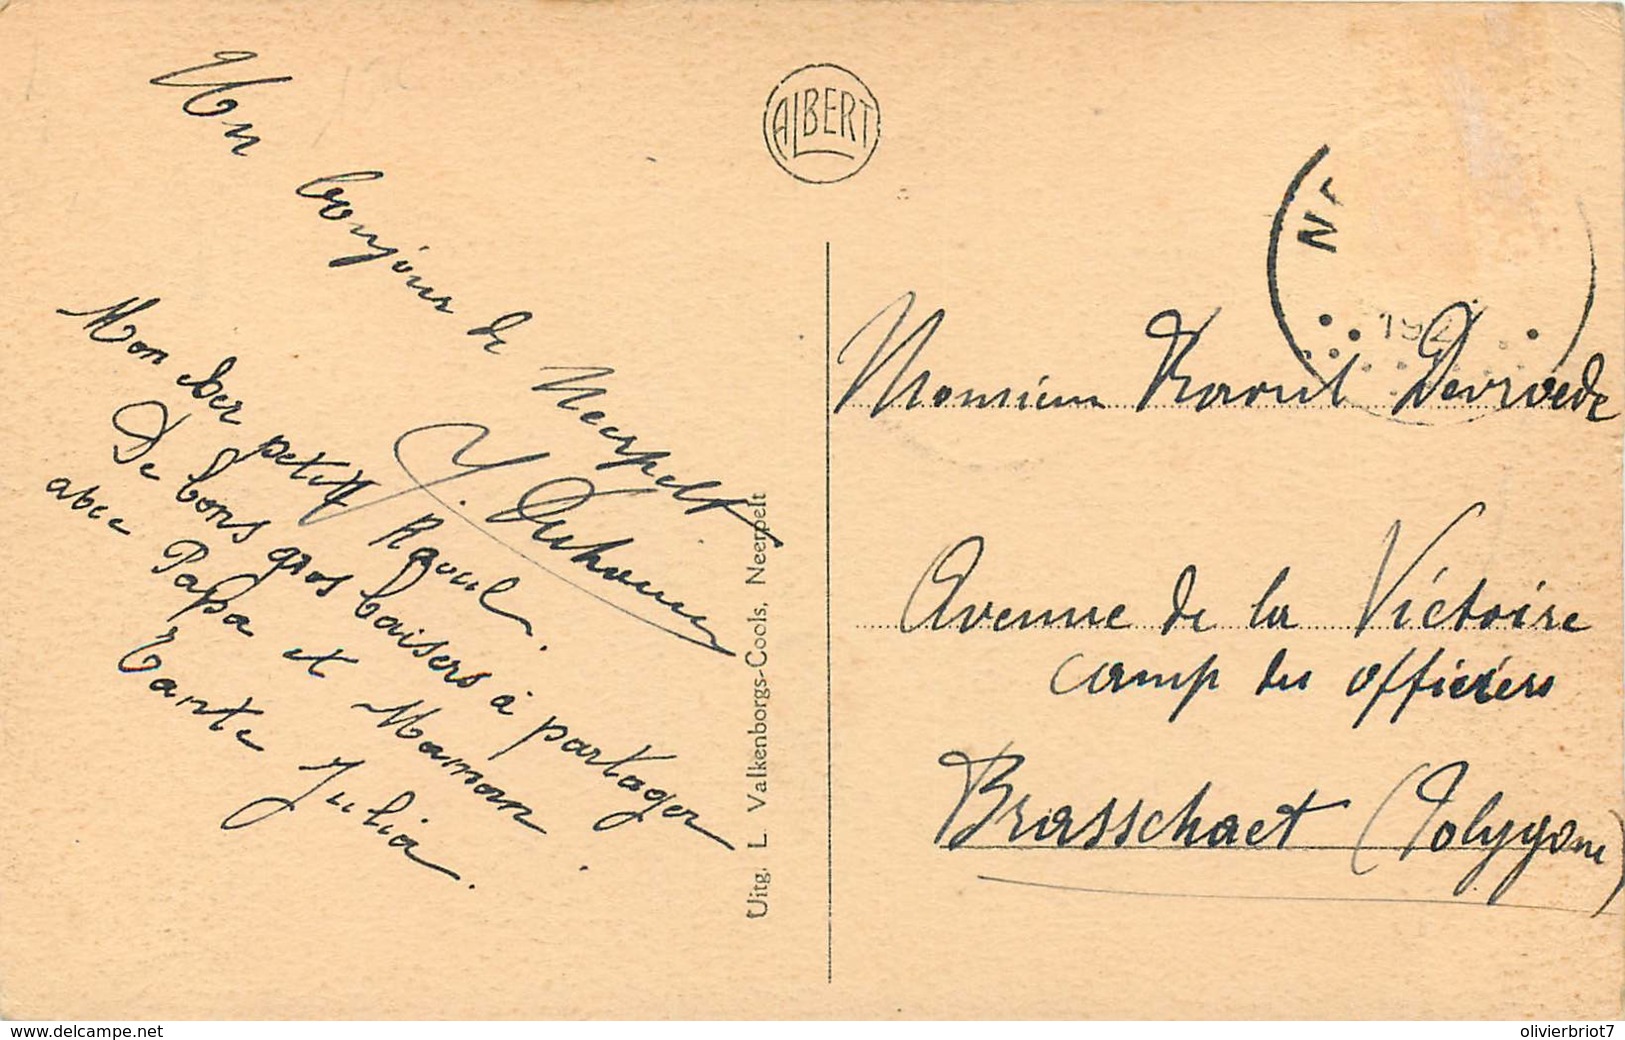 Un bonjour de Neerpelt
Mon cher petit Raoul.
De bons gros baisers à partager
avec Papa et Maman.
Tante Julia.
ALBERT
Uitg. L. Valkenborgs-Cools, Neerpelt
192
Monsieur Raoul Devroede
Avenue de la Victoire
camp des officiers
Brasschaet (Polygone)
www.delcampe.net
olivierbriot7